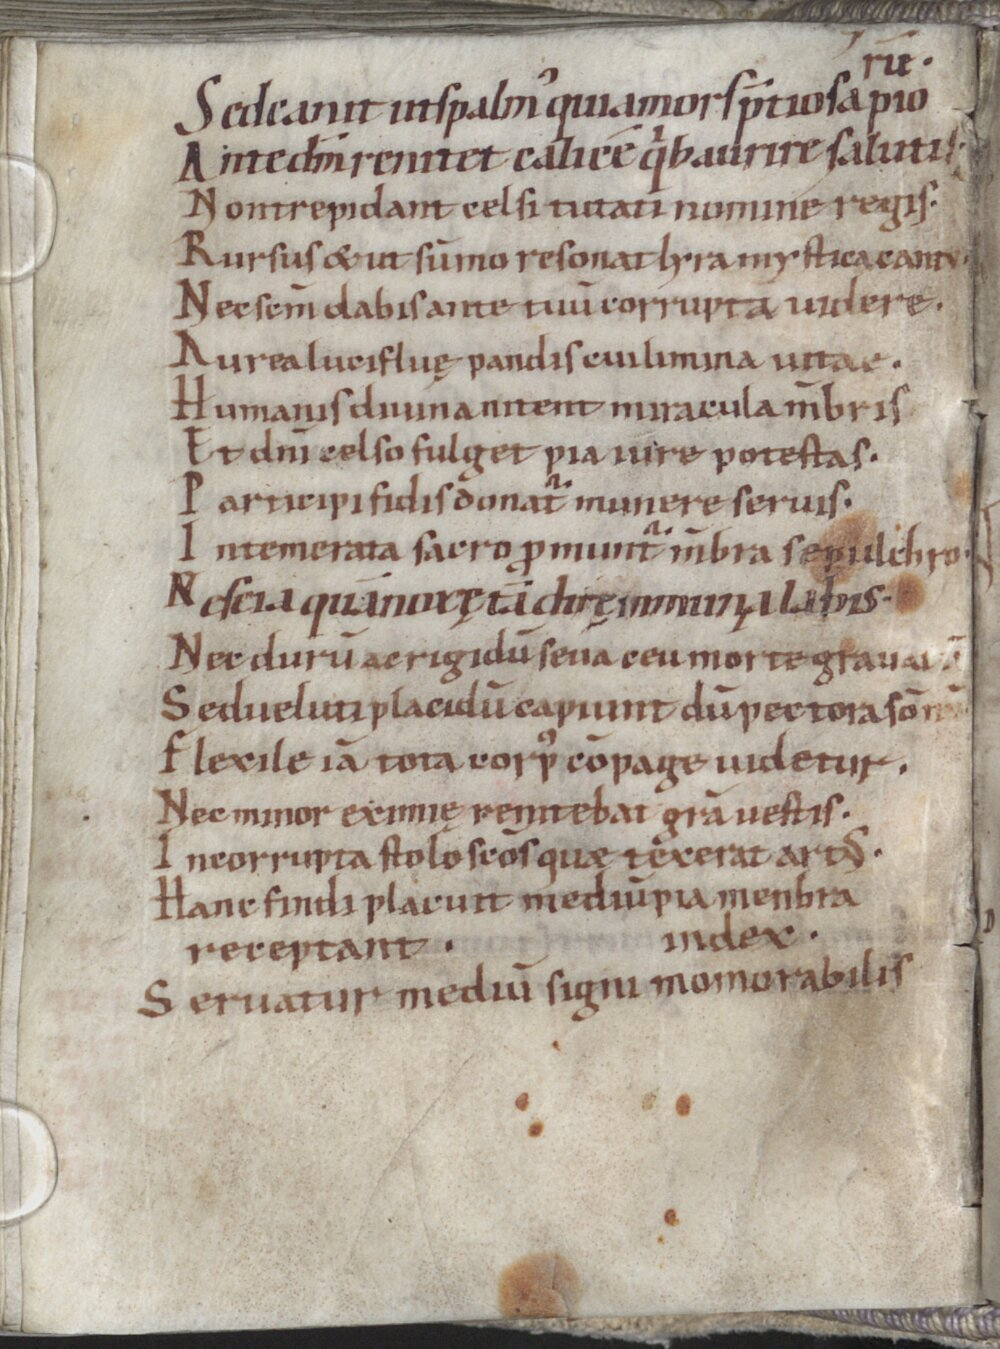 rū.
Sed canit ut spalmꝰ quia mors p̄tiosa pio
Ante dn̄m renitet calicē q̇ haurire salutis.
Non trepidant celsi tutati nomine regis.
Rursus & ut sūmo resonat lyra mystica cantu.
Nec scm̄ dabis ante tuū corruptā uidere.
Aurea lucifluę pandis cui limina uitae.
Humanis diuina nitent miracula m̄bris
Et dn̄i celso fulget pia iure potestas.
Participi fidis donat᷑ munere seruis.
Intemerata sacro ꝓmunt᷑ m̄bra sepulchro.
Nescia quā noxę tā dirę inmunia labis.
Nec durū ac rigidū seua ceu morte grauatū
Sed ueluti placidū capiunt dū pectora sōnū
Flexile iā tota corpꝰ cōpage uidetur.
Nec minor eximię renitebat grā uestis.
Incorrupta stolo scōs quæ texerat artꝰ.
Hanc findi placuit mediū pia menbra
receptant. index.
Seruatur mediū signi momorabilis